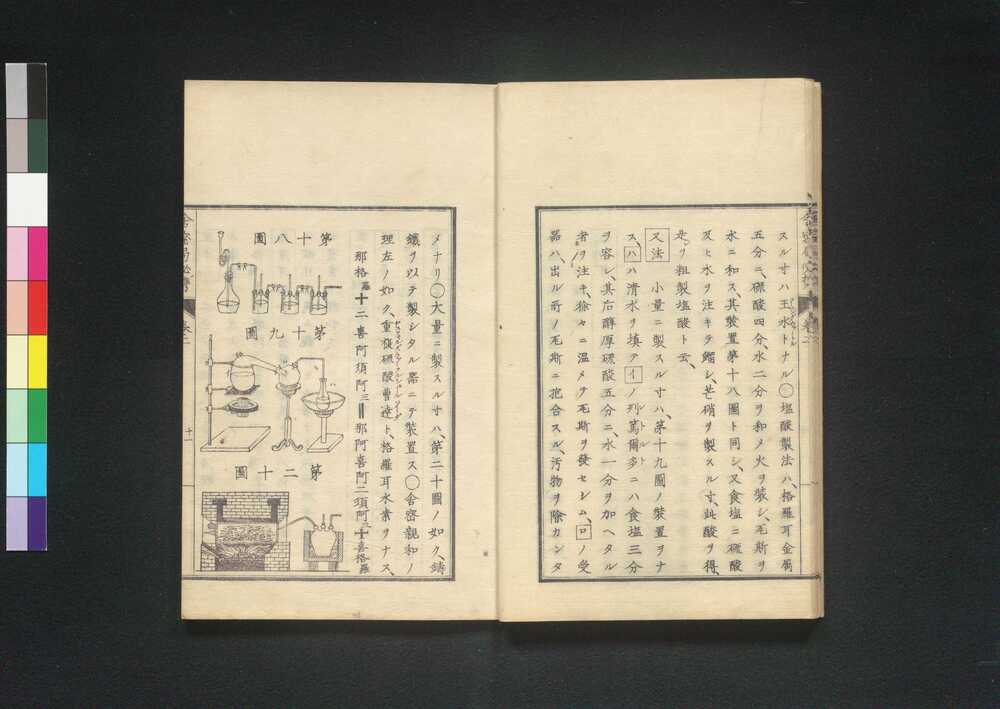 スル寸ハ王水トナル〇塩酸製法ハ、格羅耳金屬
五分ニ、硫酸四分、水二分ヲ和メ火ヲ装シ、瓦斯ヲ
水ニ和ス、其装置第十八圖ト同シ、又食塩ニ硫酸
及ヒ水ヲ注キテ餾シ、芒硝ヲ製スル寸、此酸ヲ得、
是ヲ粗製塩酸ト云、
又法 小量ニ製スル寸ハ、第十九圖ノ装置ヲナ
ス、ハハ清水ヲ填テ、イノ列篤爾多ニハ食塩三分
ヲ容レ、其后醇厚硫酸五分ニ、水一分ヲ加ヘタル
者ヲ注キ、徐々ニ温メテ瓦斯ヲ發セシム、ロノ受
器ハ、出ル所ノ瓦斯ニ抱合スル、汚物ヲ除カンタ
メナリ〇大量ニ製スル寸ハ、第二十圖ノ如ク、鋳
鐵ヲ以テ製シタル器ニテ装置ス〇舎密親和ノ
理左ノ如ク、重複硫酸曹達ト、格羅耳水素ヲナス、
那格羅十二喜阿須阿三‖那阿喜阿二須阿三十喜格羅
第十八圖
第十九圖
第二十圖
十一